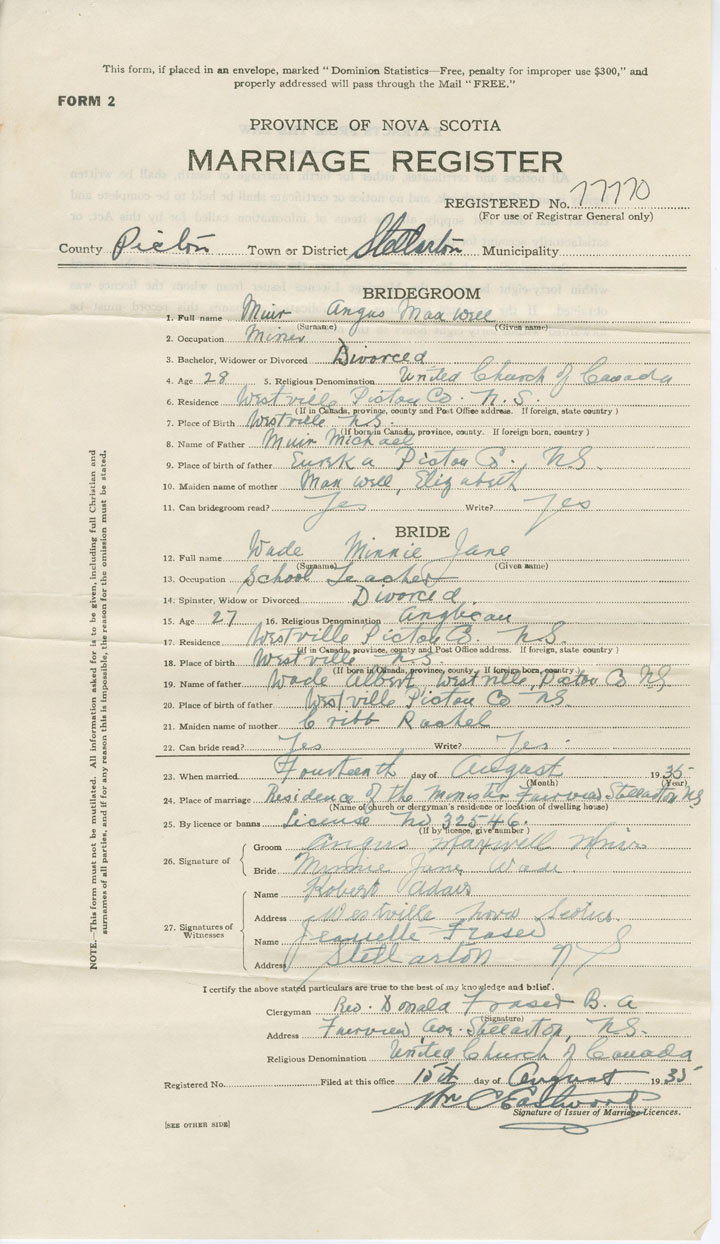 This form, if placed in an envelope, marked "Dominion Statistics—Free, penalty for improper use $300," and
properly addressed will pass through the Mail "FREE."
FORM 2
PROVINCE OF NOVA SCOTIA
MARRIAGE REGISTER
REGISTERED No. 77770
(For use of Registrar General only)
County Pictou Town or District Stellarton Municipality
BRIDEGROOM
1. Full name Muir Angus Maxwell
(Surname) (Given name)
2. Occupation Miner
3. Bachelor, Widower or Divorced Divorced
4. Age 28 5. Religious Denomination United Church of Canada
6. Residence Westville Pictou Co. N.S.
(If in Canada, province, county and Post Office address. If foreign, state country )
7. Place of Birth Westville N.S.
(If born in Canada, province, county. If foreign born, country )
8. Name of Father Muir Michael
9. Place of birth of father Eureka Pictou Co., N.S.
10. Maiden name of mother Maxwell, Elizabeth
11. Can bridegroom read? Yes Write? Yes
BRIDE
12. Full name Wade Minnie Jane
(Surname) (Given name)
13. Occupation School Teacher
14. Spinster, Widow or Divorced Divorced
15. Age 27 16. Religious Denomination Anglican
17. Residence Westville Pictou Co. N.S.
(If in Canada, province, county and Post Office address. If foreign, state country )
18. Place of birth Westville N.S.
(If born in Canada, province, county. If foreign born, country.)
19. Name of father Wade Albert, Westville, Pictou Co N.S.
20. Place of birth of father Westville Pictou Co N.S.
21. Maiden name of mother Cribb Rachel
22. Can bride read? Yes Write? Yes.
23. When married Fourteenth day of August 1935
(Month) (Year)
24. Place of marriage Residence of the Minister Fairview Stellarton N.S
(Name of church or clergyman's residence or location of dwelling house)
25. By licence or banns License No 32546.
(If by licence, give number )
26. Signature of
Groom Angus Maxwell Muir
Bride Minnie Jane Wade
27. Signatures of Witnesses
Name Robert Adair
Address Westville Nova Scotia
Name Jeannette Fraser
Address Stellarton N S
I certify the above stated particulars are true to the best of my knowledge and belief.
Clergyman Rev. Donald Fraser B.A
(Signature)
Address Fairview Ave. Stellarton, N.S.
Religious Denomination United Church of Canada
Registered No. Filed at this office 15th day of August 1935
Wm C Eastwood
Signature of Issuer of Marriage Licences.
[SEE OTHER SIDE]
NOTE.—This form must not be mutilated. All information asked for is to be given, including full Christian and
surnames of all parties, and if for any reason this is impossible, the reason for the omission must be stated.